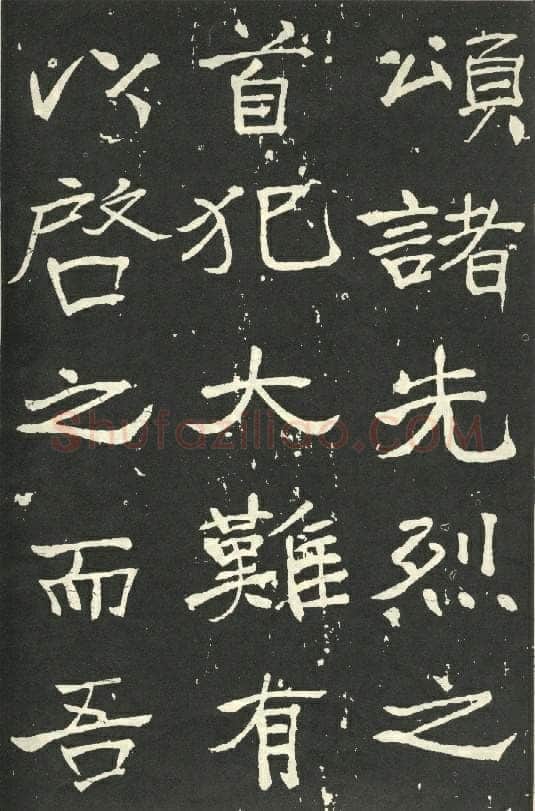 頌諸先烈之
首犯大難有
以啓之而吾
Shufaziliao.COM